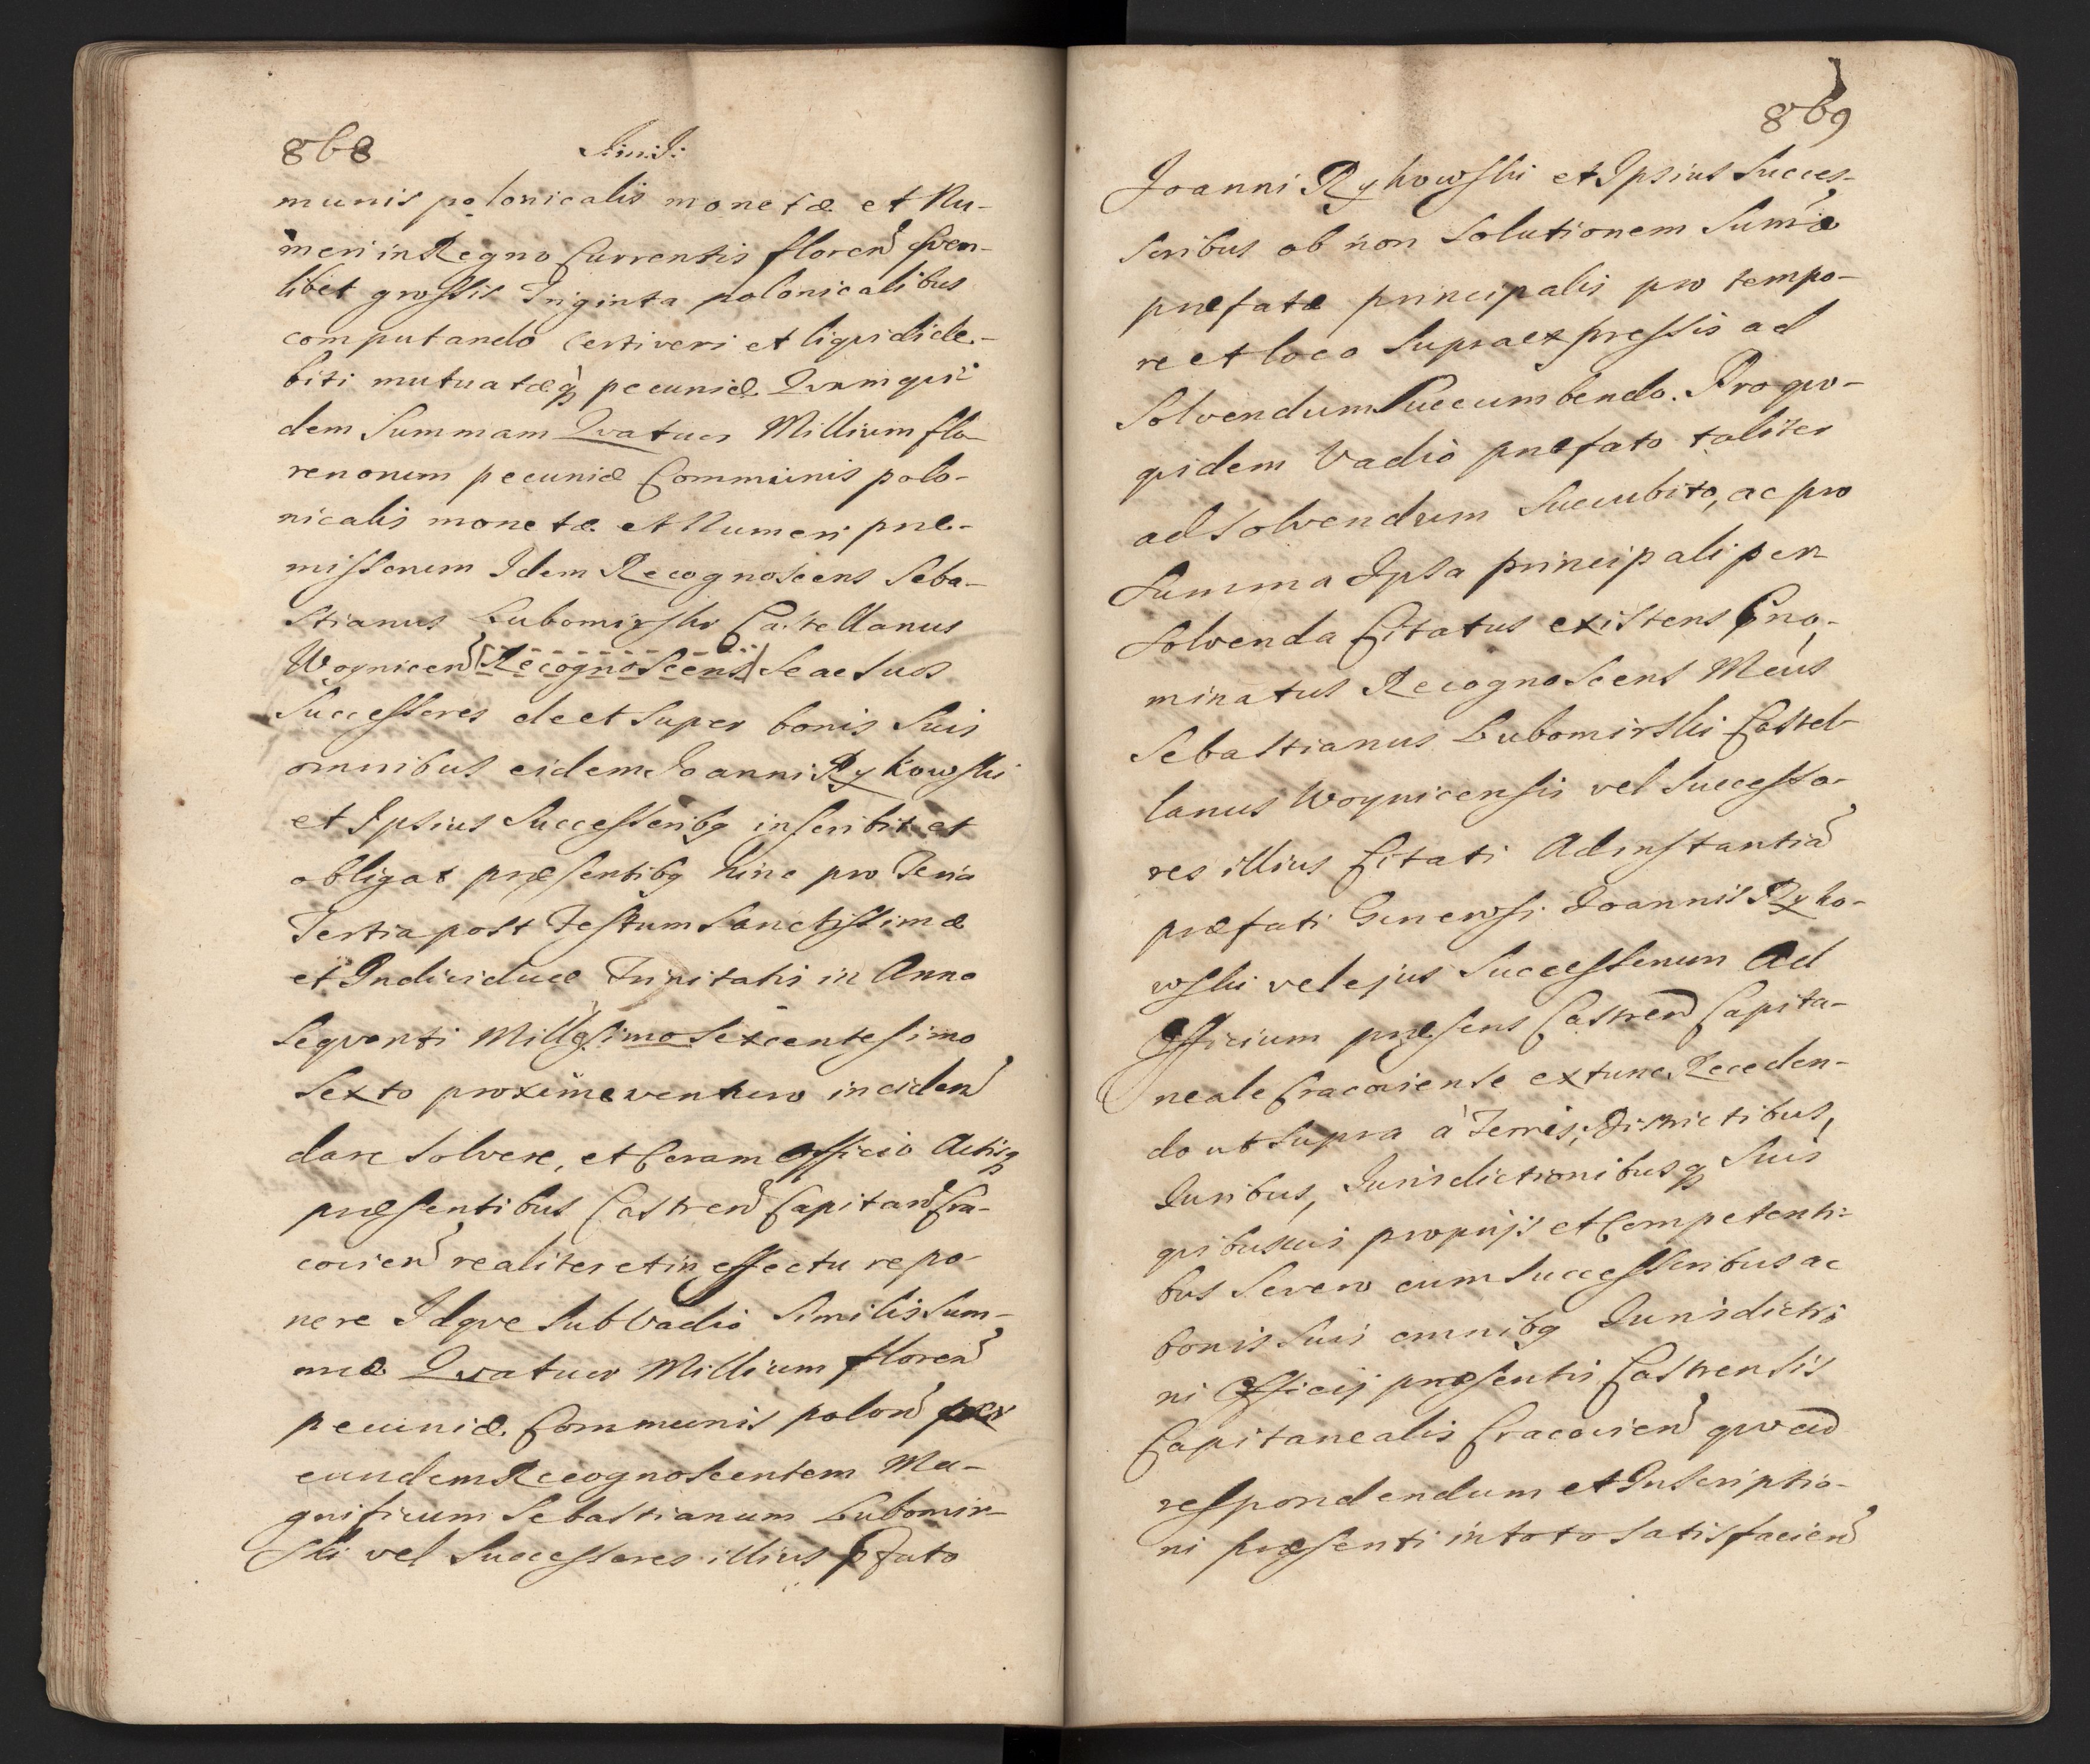 868
munis polonicalis monetæ et Nu-
meri in Regno Currentis floren quem-
libet grossis Triginta polonicalibus
computando certi veri et liquidi de-
biti mutuatæq pecuniæ Quamqui-
dem Summam Qvatuor Millium flo-
renorum pecuniæ Communis polo-
nicalis monetæ et Numeri præ-
missorum Idem Recognoscens Seba-
stianus Lubomirski Castellanus
Woynicen Recognoscens Se ac Suos
Successores de et Super bonis Suis
omnibus eidem Joanni Rykowski
et Ipsius Successoribq inscribit et
obligat præsentibq hinc pro Feria
Tertia post Festum Sanctissimæ
et Individuæ Trinitatis in Anno
Seqventi Millesimo Sexcentesimo
Sexto proxime venturo inciden
dare Solvere, et Coram Officio Actisq
præsentibus Castren Capitan Cra-
covien realiter et in effectu repo-
nere Idqve Sub Vadio Similis Sum-
mæ Qvatuor Millium floren
pecuniæ Communis polon per
eundem Recognoscentem Ma-
gnificum Sebastianum Lubomir-
ski vel Successores illius pfato
869
Joanni Rykowski et Ipsius Succes-
soribus ob non Solutionem Sumæ
præfatæ principalis pro tempo-
re et loco Supraexpressis ad
Solvendum Succumbendo. Pro quo-
quidem Vadio præfato taliter
ad Solvendum Succubito, ac pro
Summa Ipsa principali per-
solvenda Citatus existens Gno-
minatus Recognoscens Meus
Sebastianus Lubomirski Castel-
lanus Woynicensis vel Successo-
res illius Citati Ad instantia
præfati Generosi Joannis Ryko-
wski vel ejus Successorum Ad
Officium præsens Castren Capita-
neale Cracoviense extunc Receden-
do ut Supra à Terris, Districtibus,
Iuribus, Iurisdictionibusq Suis
quibusvis proprijs et Competenti-
bus Se vero cum Successoribus ac
bonis Suis omnibq Iurisdictio
ni Officij præsentis Castrensis
Capitanealis Cracovien quoad
respondendum et Inscriptio-
ni præsenti in toto Satisfacien